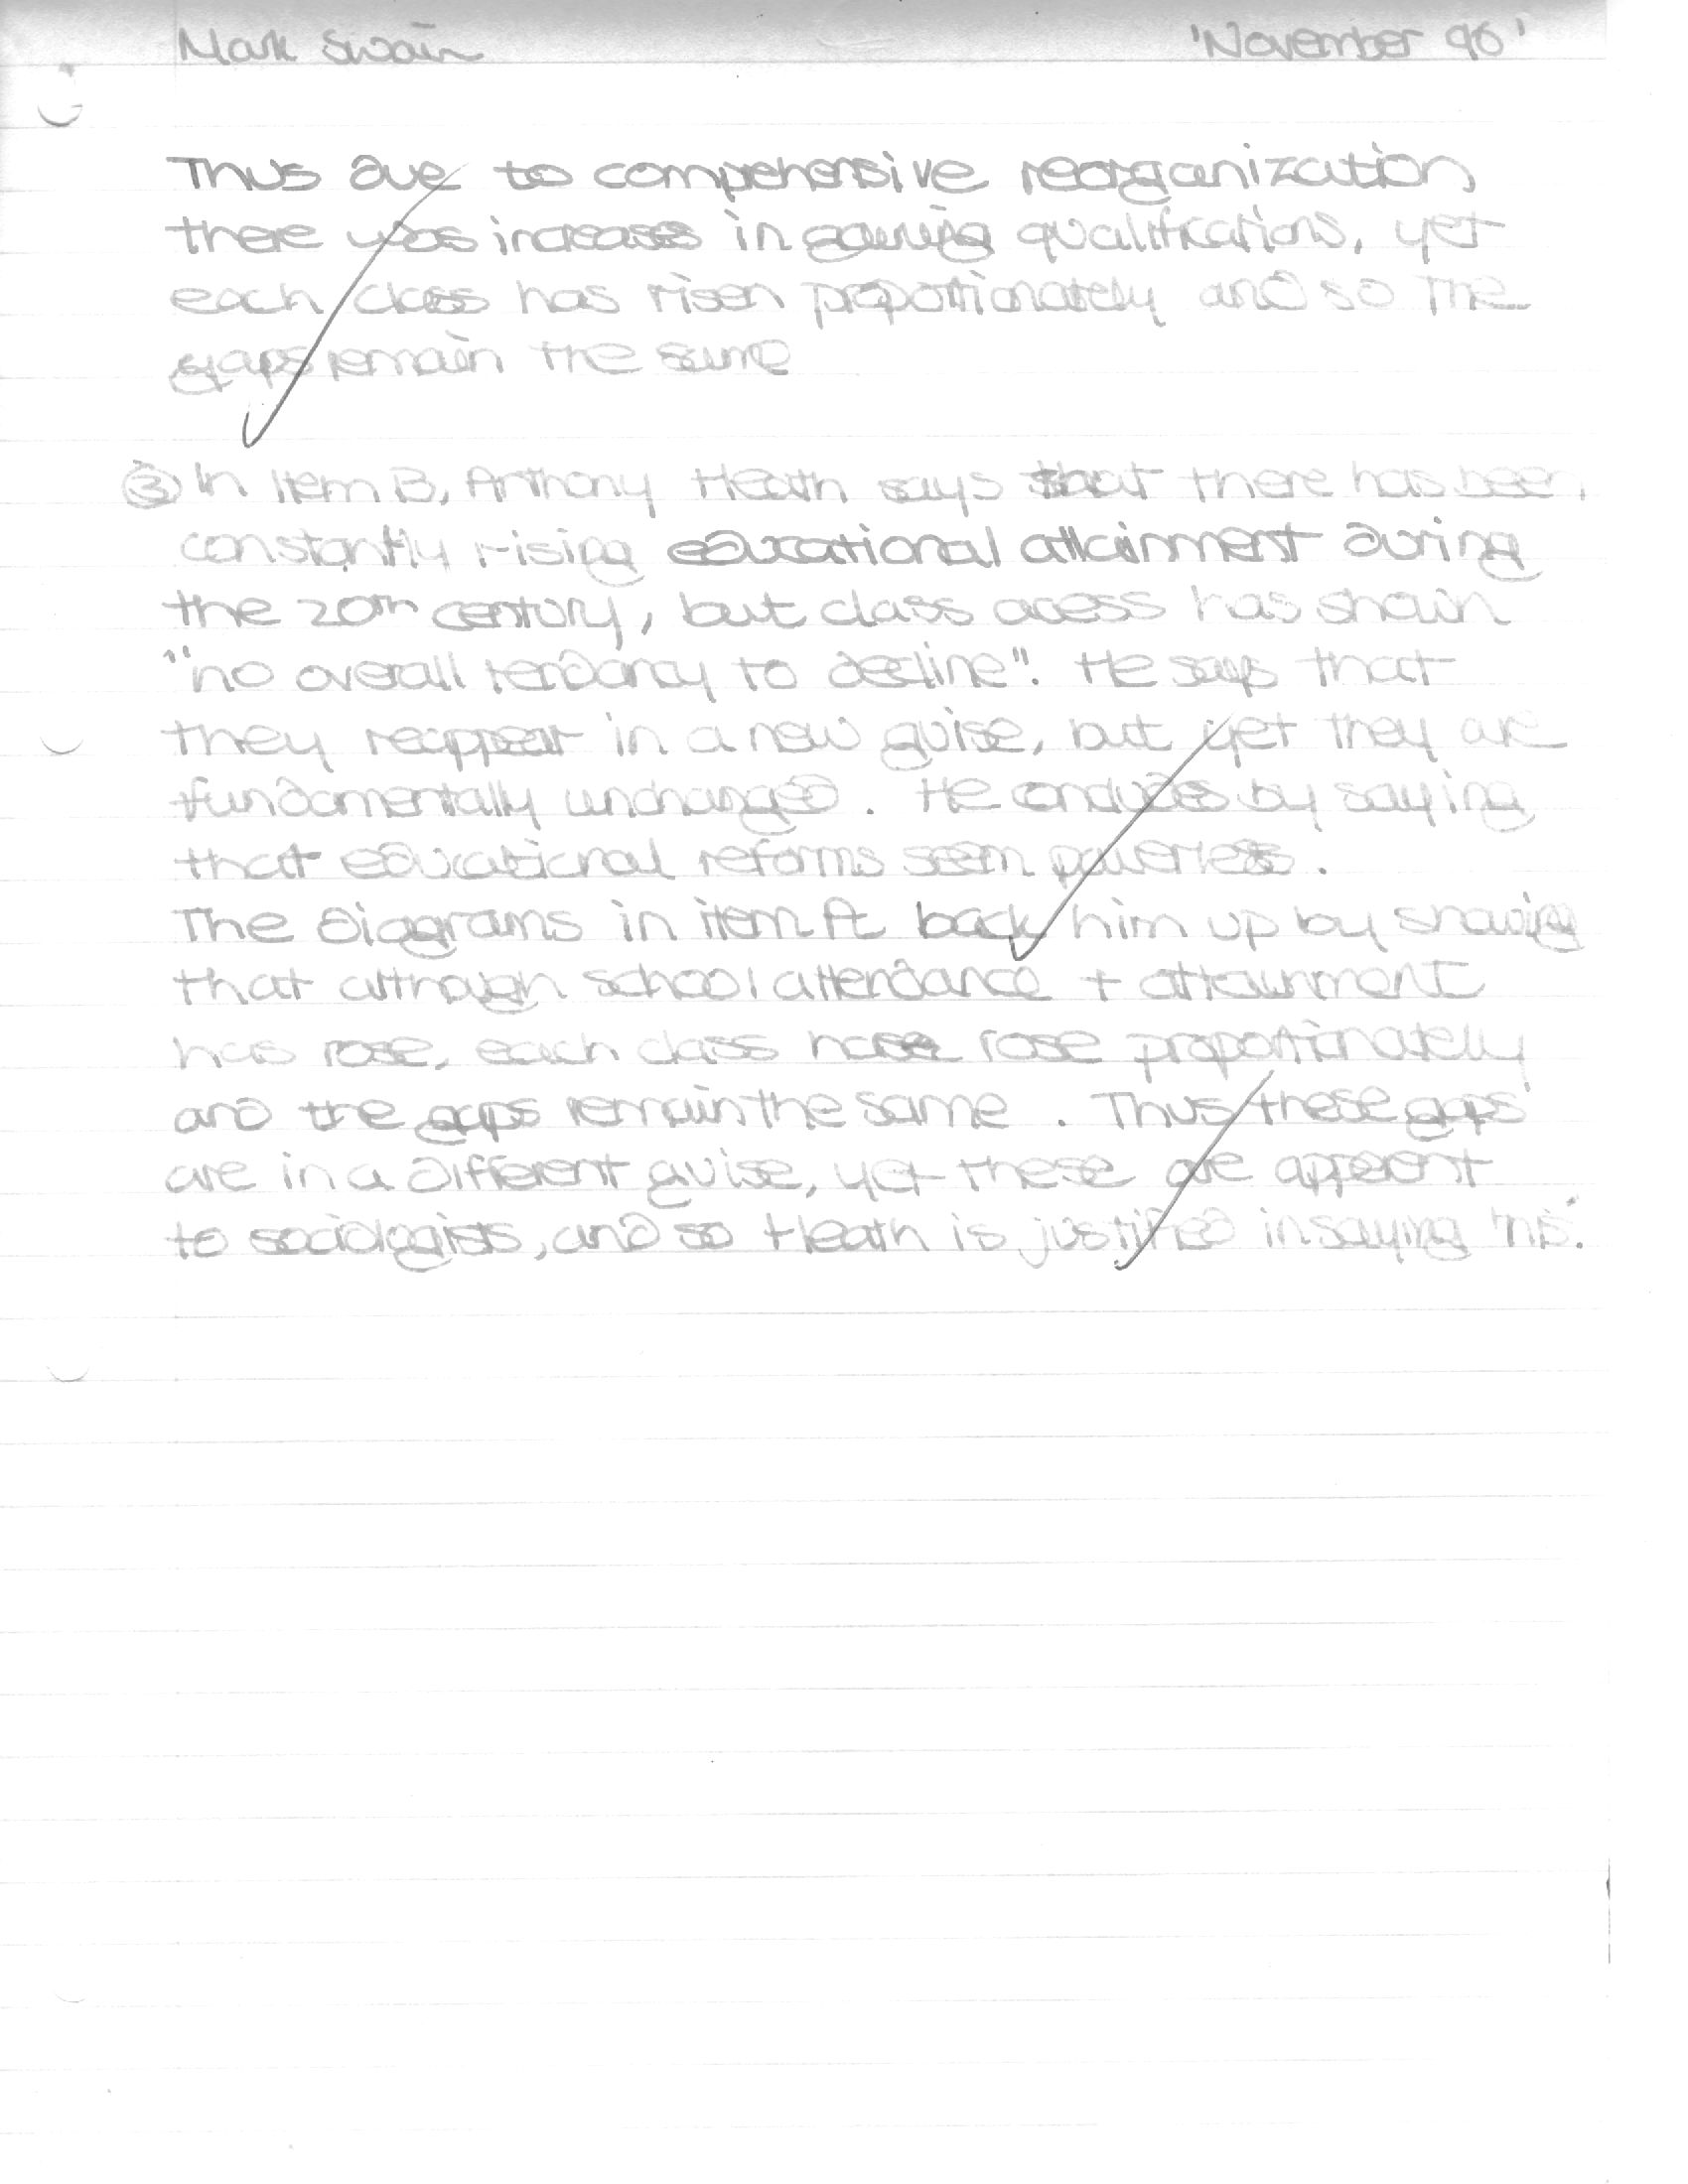 Mark Swain 'November 96'
Thus due to comprehensive reorganization
there was increases in gaining qualifications, yet
each class has risen proportionately and so the
gaps remain the same
③ In Item B, Anthony Heath says that there has been
constantly rising educational attainment during
the 20th century, but class acess has shown
"no overall tendancy to decline". He says that
they reappear in a new guise, but yet they are
fundamentally unchanged. He concludes by saying
that educational reforms seem powerless.
The diagrams in item A back him up by showing
that although school attendance + attainment
has rose, each class have rose proportionately
and the gaps remain the same. Thus these gaps
are in a different guise, yet these are apparent
to sociologists, and so Heath is justified in saying this.